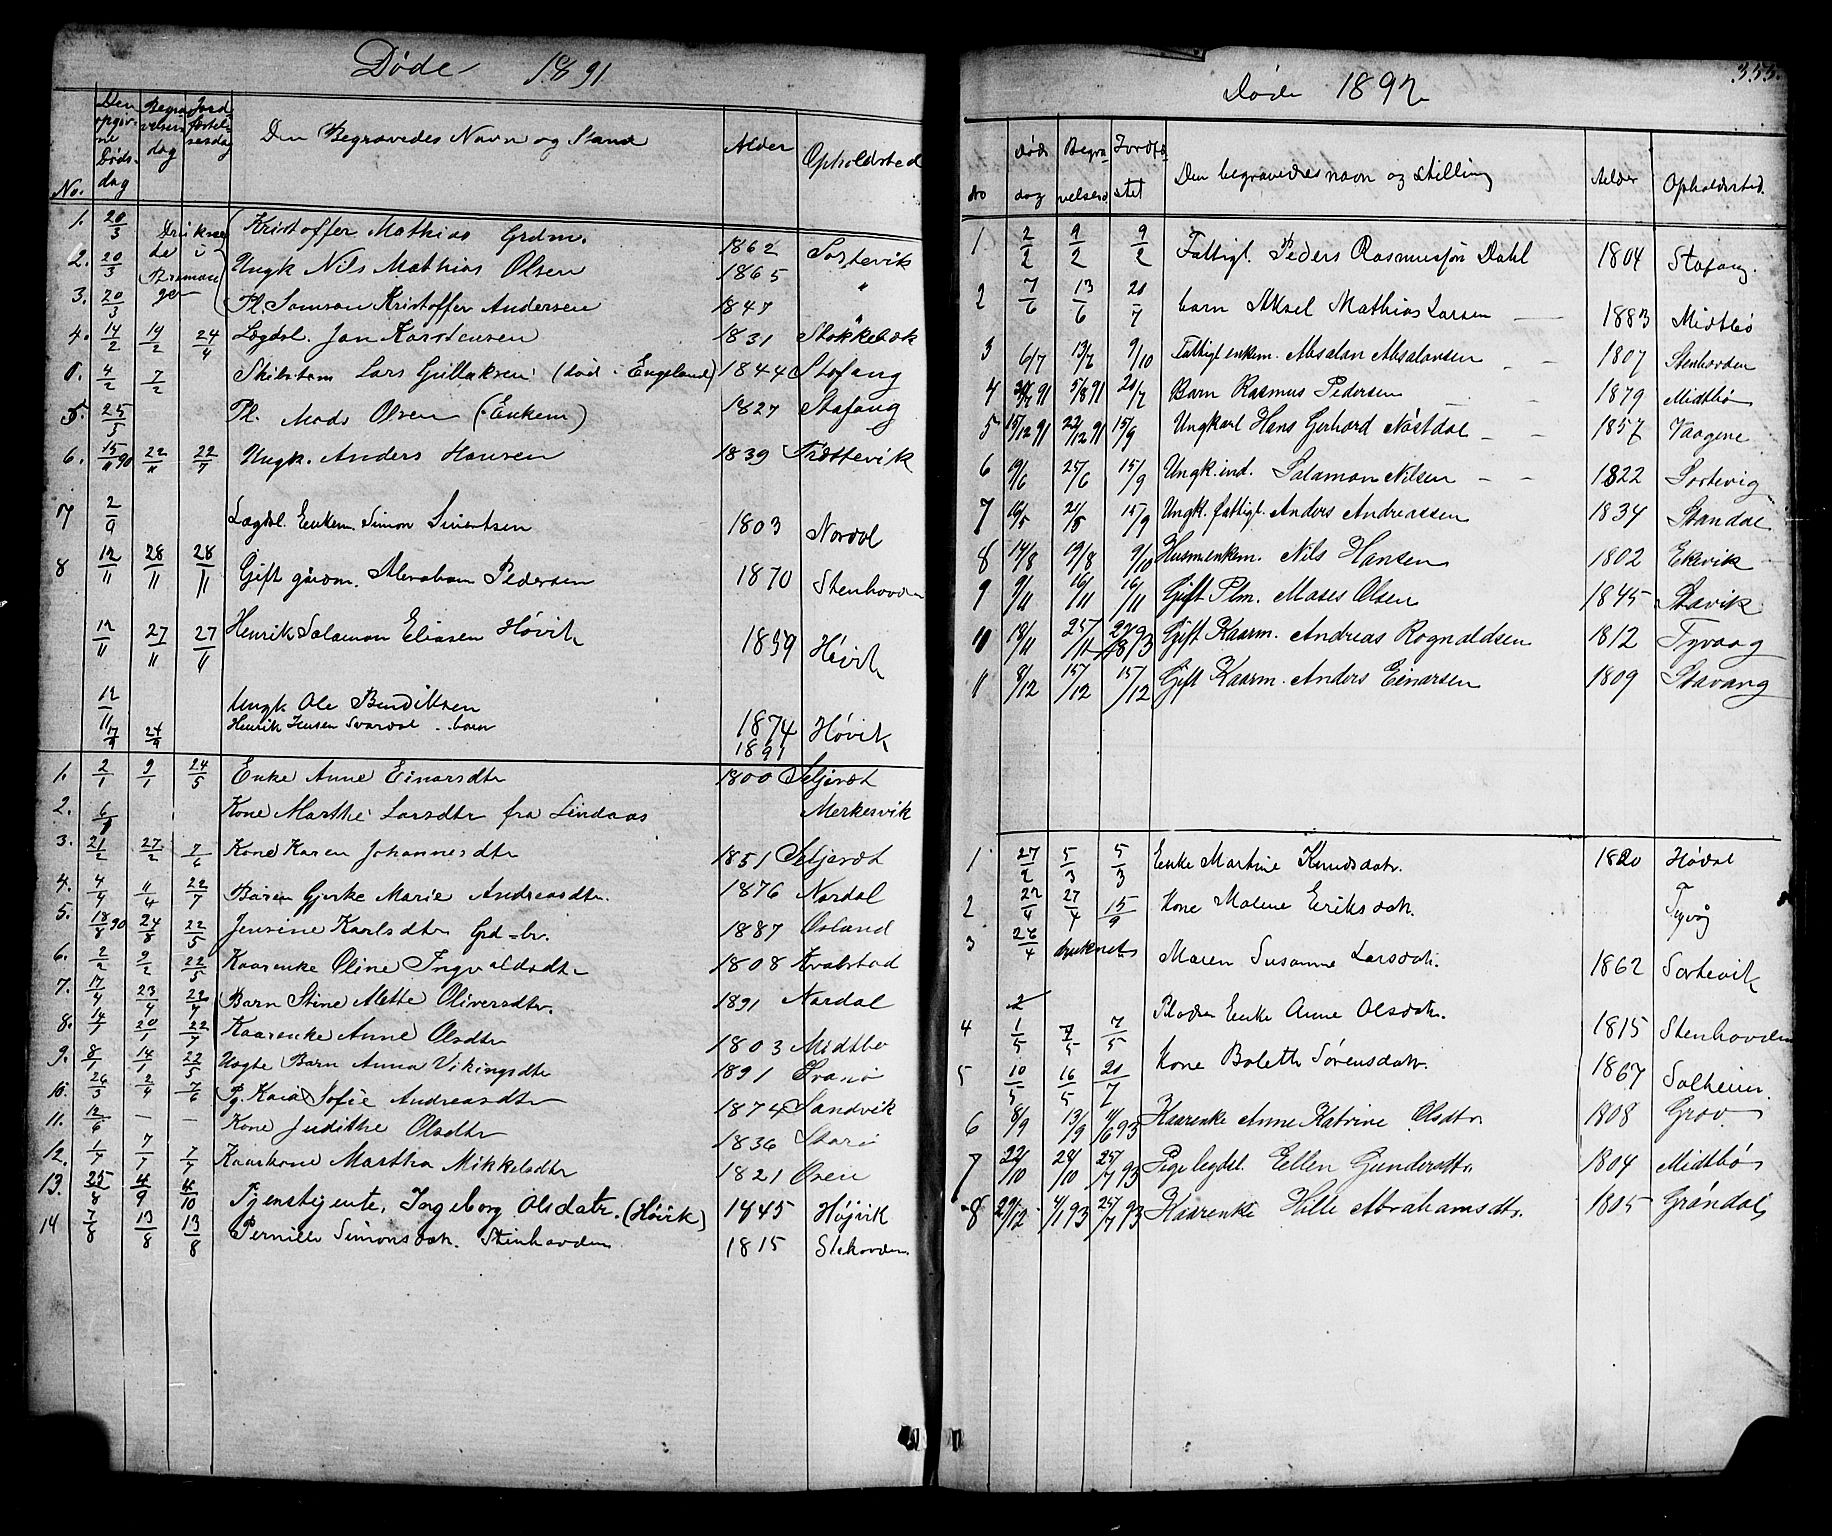 Døde 1891
No. Den opgivne Dødsdag Begravelsesdag Jordfæstelsesdag Den Begravedes Navn og Stand Alder Opholdsted
1. 20/3 Kristoffer Mathias Grdm. 1862 Sortevik
2. 20/3 Druknede i Bremanger Ungk Nils Mathias Olsen 1865 "
3. 20/3 Pl. Samson Kristoffer Andersen 1847
4. 14/2 19/2 24/4 Lægdsl. Jan Karstensen 1831 Stokkebæk
4/2 7/2 Skibstøm Lars Gullaksen (død i Engeland) 1844 Stofang
5. 25/5 Pl. Mads Olsen (Enkem) 1827 Stafang
6. 15/11 90 22/11 22/7 Ungk. Anders Hansen 1839 Trættevik
7 2/9 Lægdsl. Enkem. Simon Sivertsen 1803 Nordal
8 12/11 28/11 28/11 Gift gårdm. Abraham Pedersen 1870 Stenhovden
12/11 27/11 27/11 Henrik Salamon Eliasen Høvik 1859 Høvik
12/11 Ungk Ole Bendiktsen 1874 Høvik
17/9 24/9 Henrik Jensen Svardal barn 1891
1. 2/1 9/1 24/5 Enke Anne Einarsdtr 1800 Seljevet
2. 6/1 Kone Marthe Larsdtr fra Lindaas Merkesvik
3. 21/2 27/2 7/6 Kone Karen Johannesdtr 1851 Seljevet
4. 4/4 11/4 22/7 Baren Gjerke Marie Andreasdtr. 1876 Nordal
5. 18/8 90 24/8 22/5 Jensine Karlsdtr Grd=br. 1887 Osland
6. 2/2 9/2 22/5 Kaarenke Oline Ingvaldsdtr 1808 Kvalstad
7. 17/4 23/4 22/7 Barn Stine Mette Oliversdtr. 1891 Nordal
8. 14/1 20/1 22/7 Kaarenke Anne Olsdtr 1803 Midtbø
9. 8/1 14/1 22/5 Uægte Barn Anna Vikingsdtr 1891 Svanø
10. 26/3 2/4 7/6 Pg. Kaia Sofie Andreasdtr 1874 Sandvik
11. 12/6 — — Kone Judithe Olsdtr 1836
12. 1/7 7/7 7/7 Kaarkone Martha Mikkelsdtr 1821 Oren
13. 25/8 4/9 4/10 Tjenestejente, Ingeborg Olsdatr. (Høvik) 1845 Højvik
14 7/8 13/8 13/8 Pernille Simonsdatr. Stenhovden 1815 Stehovden
355.
Døde 1892
No Døds dag Begravelses Jordfæstet Den begravedes navn og stilling Alder Opholdssted.
1 2/2 9/2 9/2 Fattigl. Peders Rasmussøn Dahl 1804 Stafang.
2 7/6 13/6 20/7 barn Aksel Mathias Larsen — 1883 Midtbø
3 6/7 13/7 9/10 Fattigl enkem. Absalon Absalonsen — 1807 Stenhovden
4 30/7 91 5/8 91 20/7 Barn Rasmus Pedersen — — 1879 Midtbø
5 15/12 91 22/12 91 15/9 Ungkarl Hans Gerhard Nøstdal — — 1857 Vaagene
6 19/6 25/6 15/9 Ungk. ind. Salamon Nilsen — — 1822 Sortevig
7 16/5 21/5 15/9 Ungk. fattigl. Anders Andreassen 1834 Standal
8 14/8 19/8 9/10 Husmenkm. Nils Hansen 1802 Ekevik
9 9/11 16/11 16/11 Gift Plm. Moses Olsen 1845 Stavik
10 18/11 25/11 Gift Kaarm. Andreas Rognaldsen 1812 Tyvaag
11 8/12 15/12 15/12 Gift Kaarm. Anders Einarsen 1809 Stavang
1 27/2 5/3 5/3 Enke Martine Knudsdatr. 1820 Høidal
2 22/4 27/4 15/9 Kone Malene Eriksdatr. Tyvåg
3 26/4 druknet Maren Susanne Larsdatr. 1862 Sortevik
4 1/5 7/5 7/5 Pladsm Enke Anne Olsdatr. 1815 Stenhovden
5 10/5 16/5 20/7 Kone Bolette Sørensdatr. 1867 Solheim.
6 8/9 13/9 4/6 93 Kaarenke Anne Katrine Olsdtr 1808 Grov
7 22/10 24/10 25/7 93 Pige legdsl. Ellen Gundersdtr. 1804 Midtbø
8 29/12 4/1 93 25/7 93 Kaarenke Hille Abrahamsdtr. 1805 Grøndal